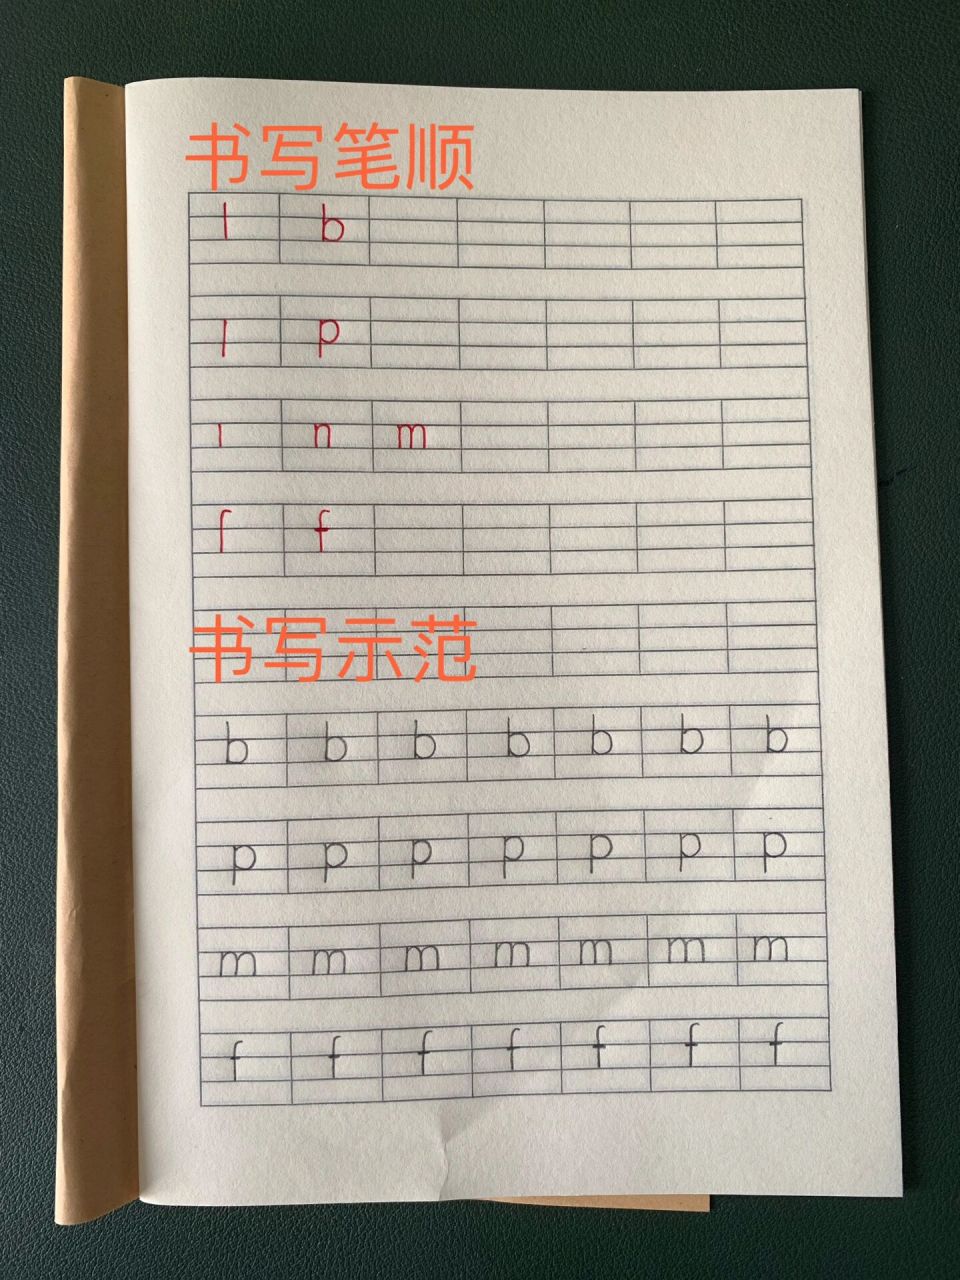 书写笔顺
l b
l p
ı n m
ſ f
书写示范
b b b b b b b
p p p p p p p
m m m m m m m
f f f f f f f